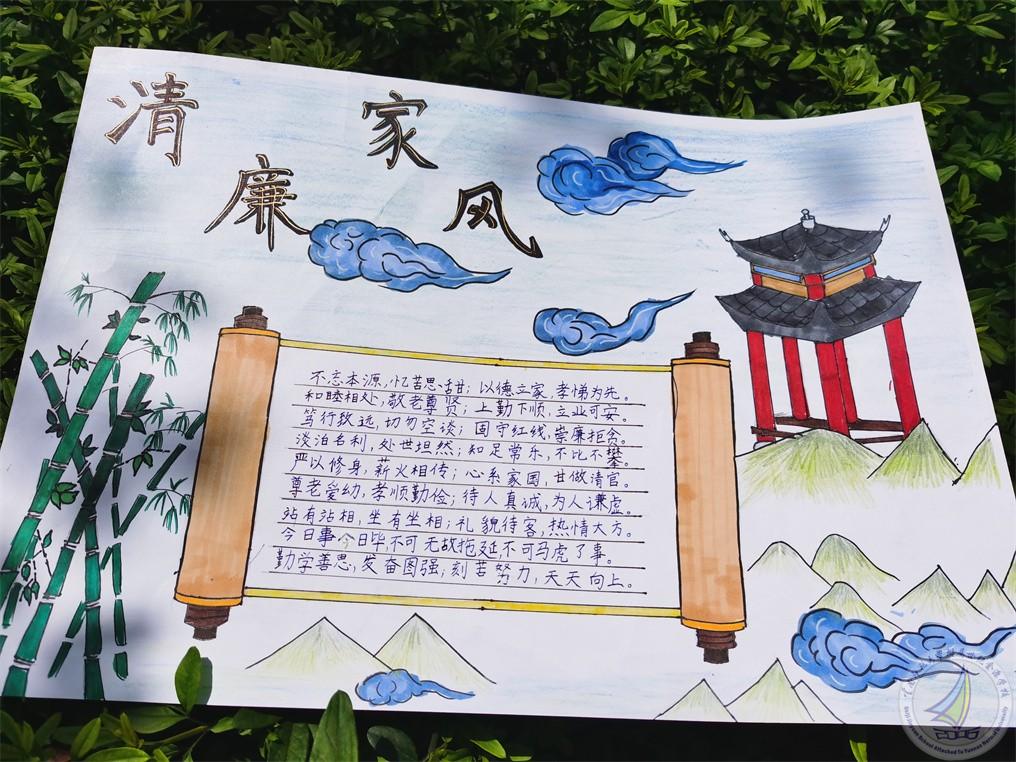 清廉家风
不忘本源，忆苦思甜；以德立家，孝悌为先。
和睦相处，敬老尊贤；上勤下顺，立业可安。
笃行致远，切勿空谈；固守红线，崇廉拒贪。
淡泊名利，处世坦然；知足常乐，不比不攀。
严以修身，薪火相传；心系家国，甘做清官。
尊老爱幼，孝顺勤俭；待人真诚，为人谦虚。
站有站相，坐有坐相；礼貌待客，热情大方。
今日事今日毕，不可无故拖延，不可马虎了事。
勤学善思，发奋图强；刻苦努力，天天向上。